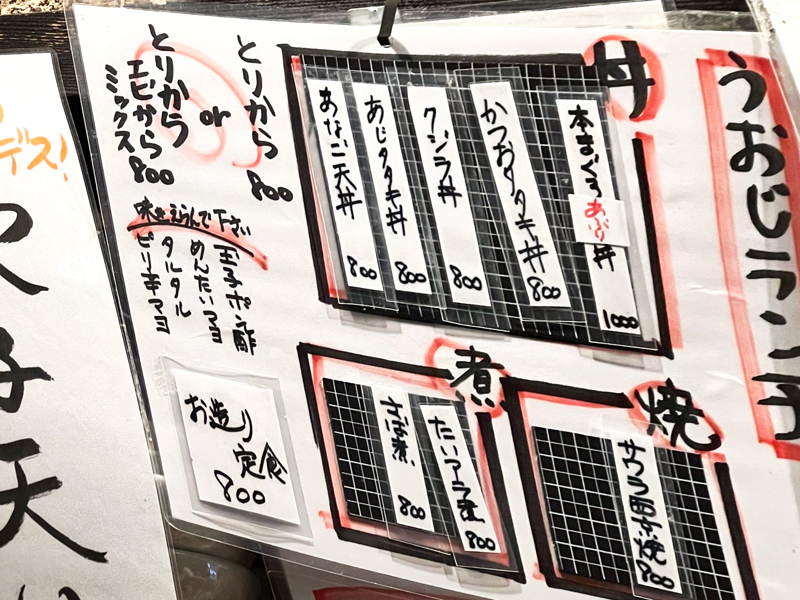 うおじランチ
丼
本まぐろあぶり丼
1000
かつおタタキ丼
800
クジラ丼
800
あじタタキ丼
800
あなご天丼
800
焼
サワラ西京焼
800
煮
たいアラ煮
800
さば煮
800
とりから
800
or
とりから
エビから
ミックス
800
味をえらんで下さい
玉子ポン酢
めんたいマヨ
タルタル
ピリ辛マヨ
お造り
定食
800
デス!
子天